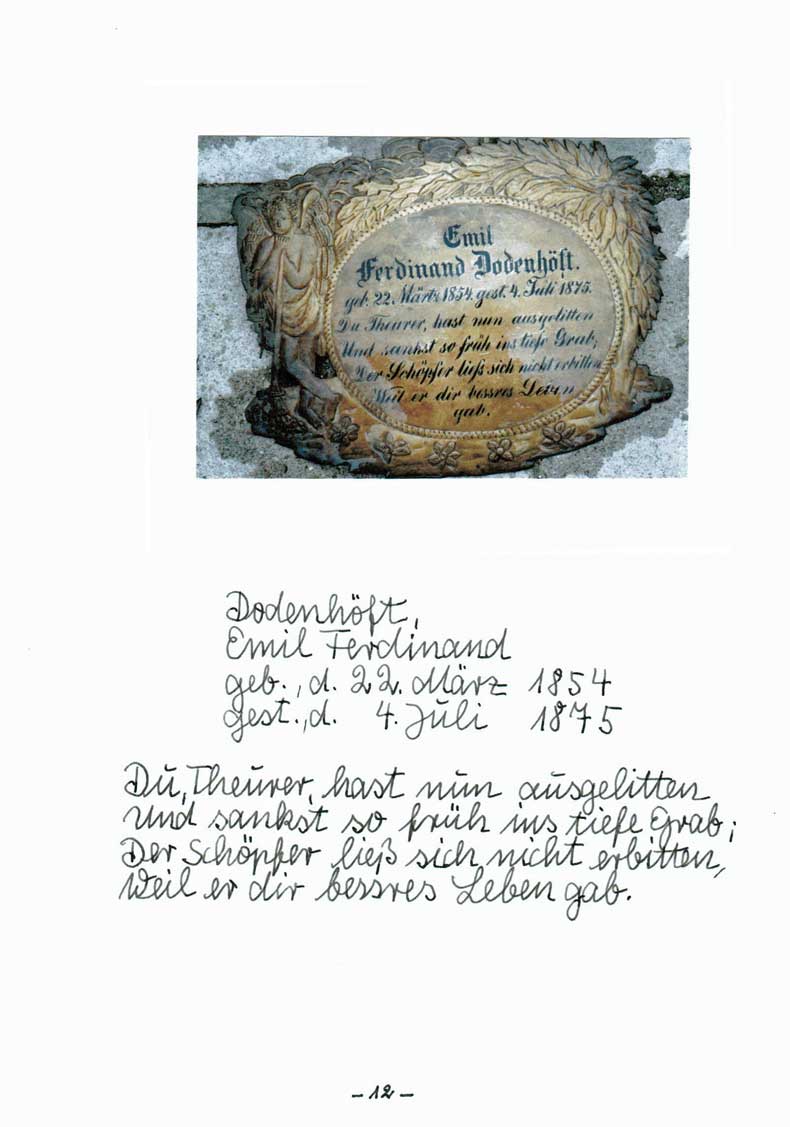 Emil
Ferdinand Dodenhöft.
geb. 22. März 1854. gest. 4. Juli 1875.
Du Theurer, hast nun ausgelitten
Und sankst so früh ins tiefe Grab;
Der Schöpfer ließ sich nicht erbitten
Weil er dir bessres Leben
gab.
Dodenhöft,
Emil Ferdinand
geb., d. 22. März 1854
gest., d. 4. Juli 1875
Du, Theurer, hast nun ausgelitten
Und sankst so früh ins tiefe Grab;
Der Schöpfer ließ sich nicht erbitten,
Weil er dir bessres Leben gab.
- 12 -